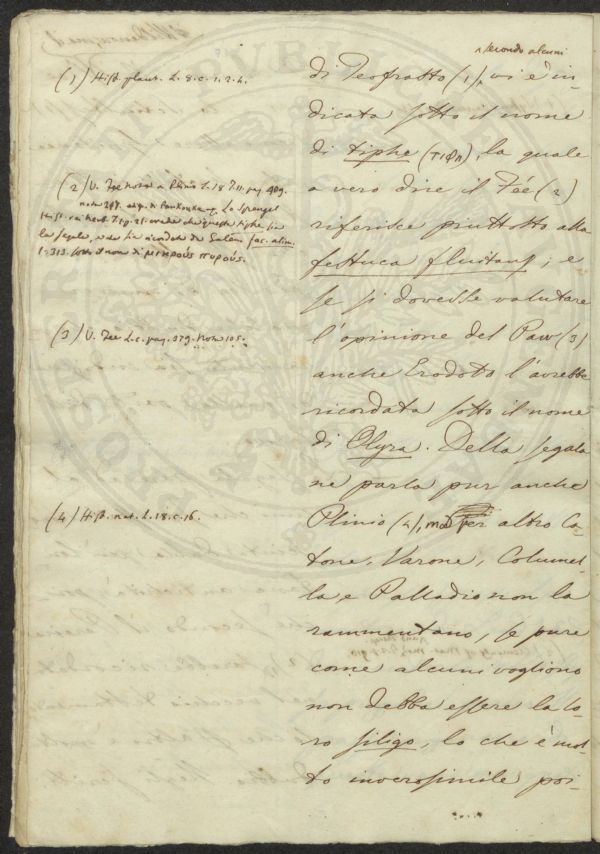 secondo alcuni
di Teofrasto (1), vi è in-
dicata sotto il nome
di tiphe (τιφη), la quale
a vero dire il Fée (2)
riferisce piuttosto alla
festuca fluitans; e
se si dovesse valutare
l'opinione del Paw (3)
anche Erodoto l'avrebbe
ricordata sotto il nome
di Olyra. Della segala
ne parla pur anche
Plinio (4), ma per altro Ca-
tone, Varone, Columel-
la, e Palladio non la
rammentano, se pure
come alcuni vogliono
non debba essere la lo-
ro siligo, lo che è mol-
to inverosimile poi-
(1) Hist. plant. L. 8. c. 1. 2. 4.
(2) V. Fée note a Plinio L. 18 T. 11. pag. 409.
nota 297. ediz. di Pankouke. Lo Sprengel
Hist. rei herb. T. 1 p. 25. crede che questa tiphe sia
la segale, e che sia ricordata da Galeno fac. alim.
1. 313. sotto il nome di μικρούς πυρούς.
(3) V. Fée L. c. pag. 379. Nota 105.
(4) Hist. nat. L. 18. c. 16.